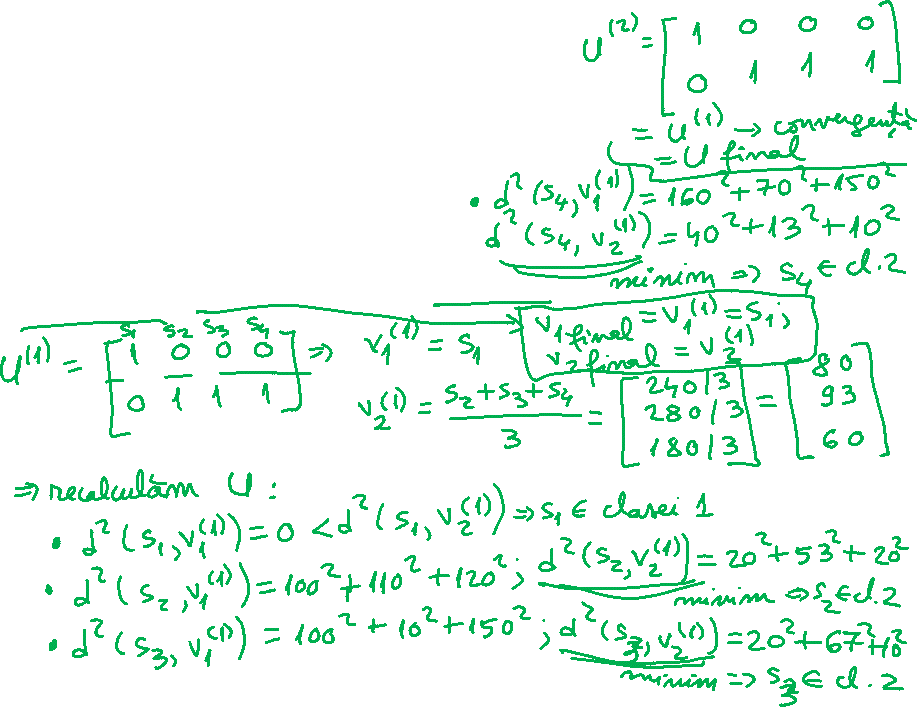 U^(2) = [ 1 0 0 0
0 1 1 1 ]
= U^(1) → convergență
= U final
• d²(s₄, v₁^(1)) = 160² + 70² + 150²
d²(s₄, v₂^(1)) = 40² + 13² + 10²
minim ⇒ s₄ ∈ cl.2
s₁ s₂ s₃ s₄
U^(1) = [ 1 0 0 0
0 1 1 1 ] ⇒ v₁^(1) = s₁
v₁ final = v₁^(1) = s₁;
v₂ final = v₂^(1)
v₂^(1) = (s₂ + s₃ + s₄)/3 = [ 240/3
280/3
180/3 ] = [ 80
93
60 ]
⇒ recalculăm U :
• d²(s₁, v₁^(1)) = 0 < d²(s₁, v₂^(1)) ⇒ s₁ ∈ clasei 1
• d²(s₂, v₁^(1)) = 100² + 110² + 120² ; d²(s₂, v₂^(1)) = 20² + 53² + 20²
minim ⇒ s₂ ∈ cl.2
• d²(s₃, v₁^(1)) = 100² + 10² + 150² ; d²(s₃, v₂^(1)) = 20² + 67² + 10²
minim ⇒ s₃ ∈ cl.2